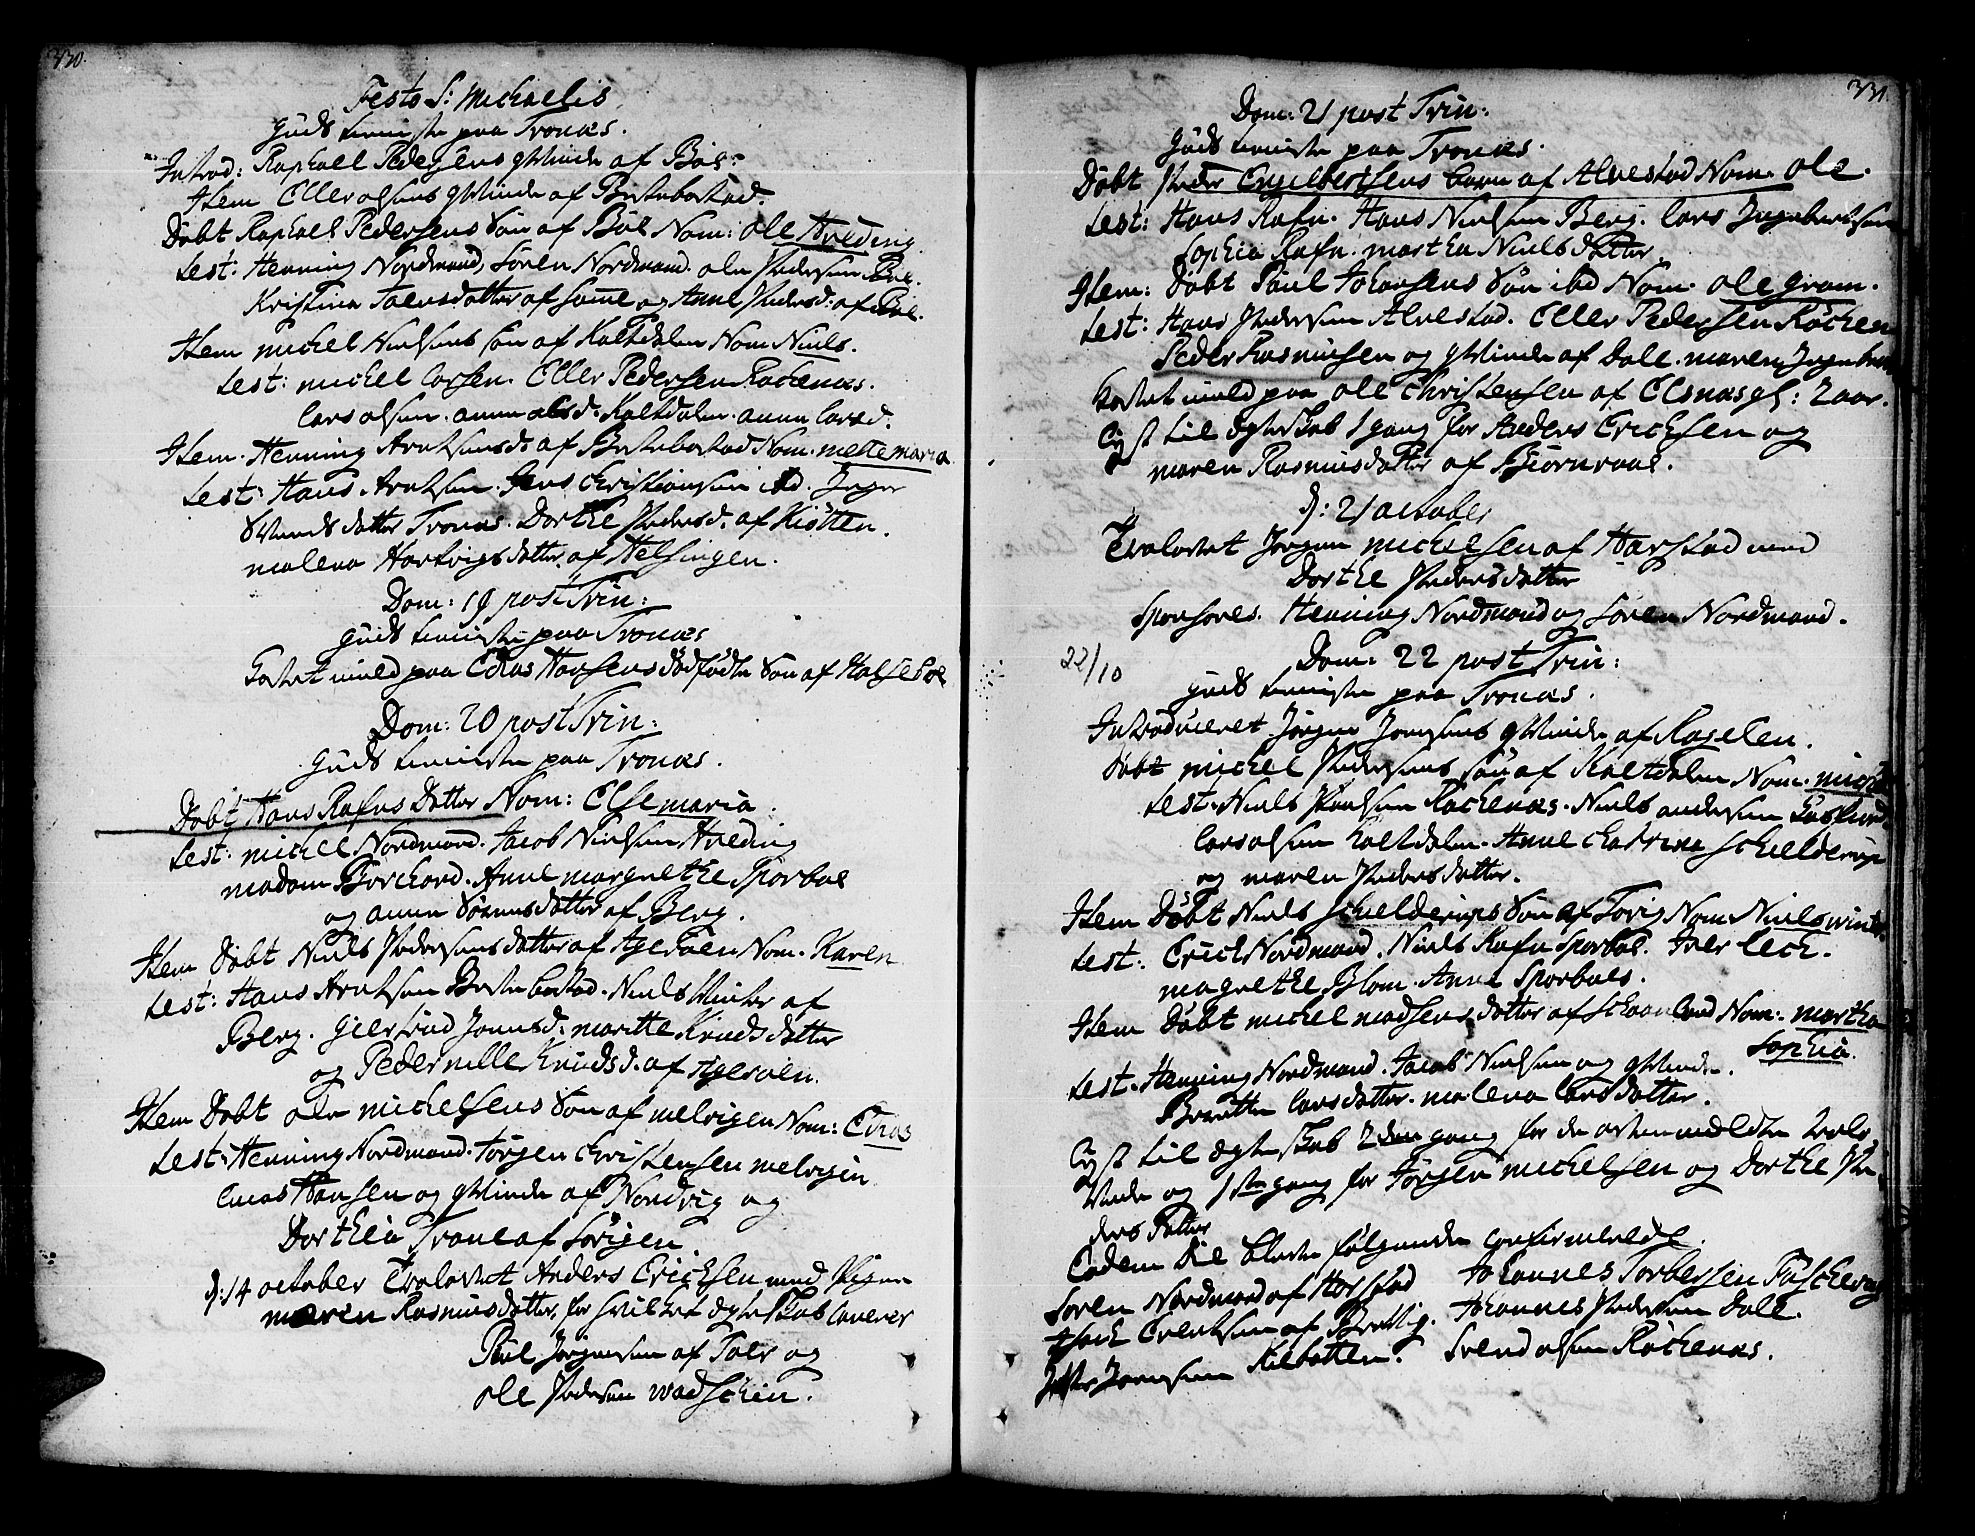 330.
Festo S: Michaelis
Guds tieniste paa Tronæs.
Introd: Raphael Pedersens qvinde af Böe.
Item Eller olsens qvinde af Bestebostad.
Döbt Raphael Pedersens Sön af Böe Nom: Ole Hveding
test: Henning Nordmand, Sören Nordmand. ole Pedersen Böe.
Kristina Toersdatter af samme og Anne Pedersd: af Böe.
Item michel Nielsens sön af Kaltdalen Nom Niels.
test: michel Larsen. Eller Pedersen Röchenæs.
Lars olsen. anne olsd: Kaltdalen. anne Larsd.
Item. Henning Arntsensd: af Bestebostad Nom. mette maria
test: Hans Arntsen. Jens Christiansen ibd. Inger
Svendsdatter Tronæs. Dorthe Pedersd. af Kiötten.
malena Hartvigsdatter af Helsingen.
Dom: 19 post Trin:
Guds tieniste paa Tronæs
Kastet muld paa Elias Hansens dödfödte Sön af Halseböe
Dom: 20 post Trin:
Guds tieniste paa Tronæs.
Döbt Hans Rafns Datter Nom: Else maria.
test: michel Nordmand. Jacob Nielsen Hveding
madam Borchard. Anne margrethe Sporboe
og anne Sörensdatter af Berg.
Item Döbt Niels Pedersens datter af Ageröen Nom. Karen
test: Hans Arntsen Bestebostad. Niels Winter af
Berg. Giertrud Jonsd: maritte Knudsdatter
og Pedernille Knudsd. af Ageröen.
Item Döbt ole michelsens Sön af melvigen Nom: Elias
test: Henning Nordmand. Jörgen Christensen melvigen
Lucas Hansen og qvinde af Nordvig og
Dorthea Trane af Sörigen
d: 14 october Trolovet Anders Erichsen med Pigen
maren Rasmusdatter, for hvilket ægteskab Caverer
Poul Jörgensen af Toer og
ole Pedersen wadschin.
331.
Dom: 21 post Trin:
Guds tieniste paa Tronæs.
Döbt Peder Engelbertsens barn af Alvestad Nom. Ole.
test: Hans Rafn. Hans Nielsen Berg. Lars Ingebertsen
Sophia Rafn. martha Nielsdatter.
Item: Döbt Paul Johansens Sön ibd Nom. ole gram.
test: Hans Pedersen Alvestad. Eller Pedersen Röchen
Peder Rasmusen og qvinde af Dale. maren Ingeb
Kastet muld paa ole Christensen af Elsnæs gl: 2 aar.
Lyst til ægteskab 1 gang for Anders Erichsen og
maren Rasmusdatter af Biörnraae.
d: 21 october
Trolovet Jörgen michelsen af Harstad med
Dorthe Pedersdatter
Sponsores. Henning Nordmand og Sören Nordmand.
22/10
Dom: 22 post Trin:
Guds tieniste paa Tronæs.
Introduceret Jörgen Jonsens qvinde af Kasfelen.
Döbt michel Pedersens sön af Kaltdalen Nom. michel
test. Niels Poulsen Röchenæs. Niels andersen
Lars olsen Kaltdalen. Anne Chatrine Schielderup
og maren Pedersdatter.
Item Döbt Niels Schielderups Sön af Torig Nom. Niels winter.
test: Erich Nordmand. Niels Rafn Sporboe. Iver Lech.
magrethe Blom. Anne Sporboes.
Item Döbt michel madsens datter af Schaanland Nom: martha
Sophia.
test. Henning Nordmand. Jacob Nielsen og qvinde.
Beritte Larsdatter. malena Larsdatter.
Lyst til ægteskab 2den gang for de ovenmeldte trolo
vede og 1ste gang for Jörgen michelsen og Dorthe Pe
ders Datter
Eodem Die bleve fölgende confirmerede.
Sören Nordmand af Harstad Johannes Torbersen Faschevog
Isach Erentsen af Brettig. Johannes Pedersen Dale.
Peder Jörgensen Kilbotten. Svend olsen Röchenæs.